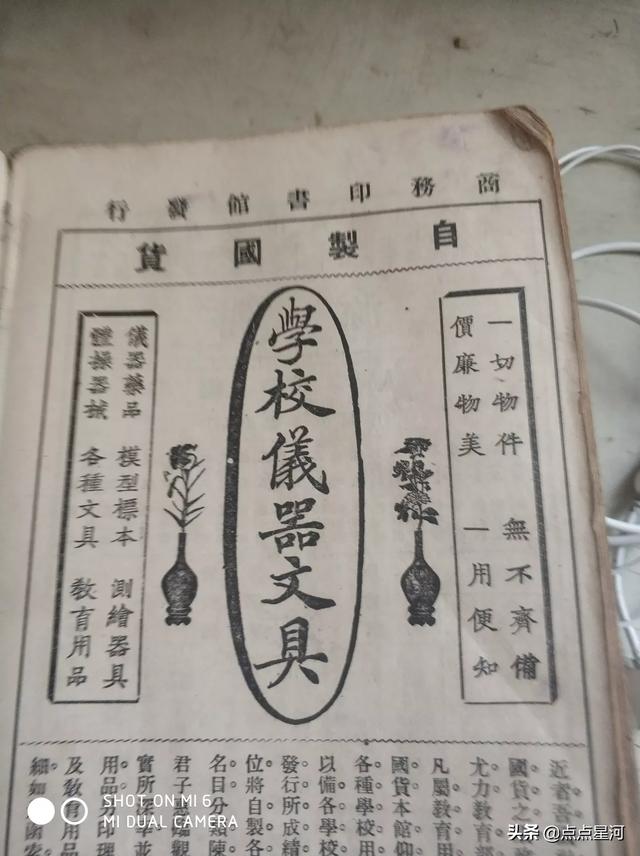 商務印書館發行
自製國貨
一切物件 無不齊備
價廉物美 一用便知
學校儀器文具
儀器藥品 模型標本 測繪器具
體操器械 各種文具 教育用品
近者
國貨之
尤力教育部
凡屬教育用
國貨本館仰
各種學校用
以備各學校
發行所成績
位將自製各
名目分類陳
君子 臨觀
實所 幸並
用品 印理
及教育用品
細如 函
SHOT ON MI 6
MI DUAL CAMERA
头条 @点点星河